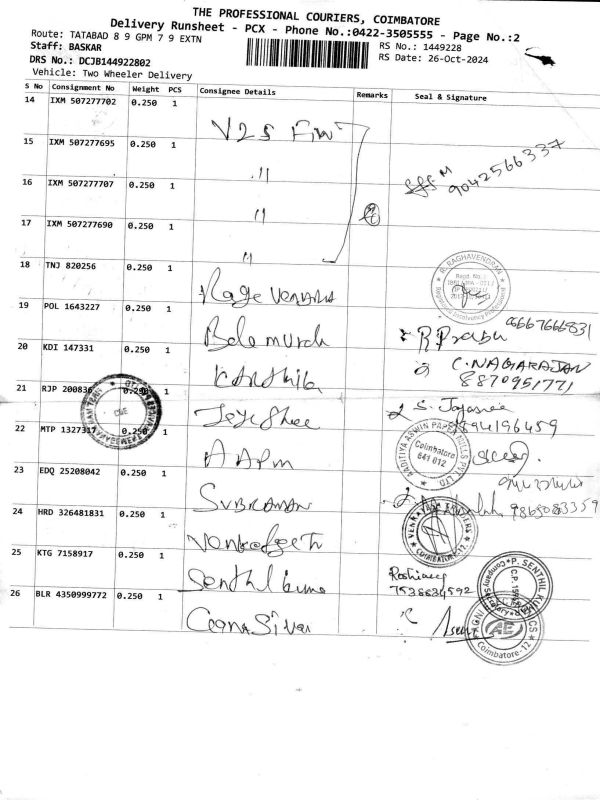 THE PROFESSIONAL COURIERS, COIMBATORE
Delivery Runsheet - PCX - Phone No.:0422-3505555 - Page No.:2
Route: TATABAD 8 9 GPM 7 9 EXTN
RS No.: 1449228
Staff: BASKAR
RS Date: 26-Oct-2024
DRS No.: DCJB144922802
Vehicle: Two Wheeler Delivery
S No Consignment No Weight PCS Consignee Details Remarks Seal & Signature
14 IXM 507277702 0.250 1 V2S
15 IXM 507277695 0.250 1 "
9042566337
16 IXM 507277707 0.250 1 "
17 IXM 507277690 0.250 1 "
18 TNJ 820256 0.250 1
R. RAGHAVENDRA
Regd. No.:
19 POL 1643227 0.250 1 Balamurali
20 KDI 147331 0.250 1 Karthik C. NAGARAJAN
8870951771
21 RJP 200836 0.250 1 Jeyashree S. Jayasree
22 MTP 1327317 0.250 1 AAPM
AADITYA ASWIN PAPER MILLS PVT. LTD.
Coimbatore
641 012
23 EDQ 25208042 0.250 1 SUBRAMAN
9865083359
24 HRD 326481831 0.250 1
COIMBATORE-12
25 KTG 7158917 0.250 1 Senthil kuma
7538834592
P. SENTHIL
Company Secretary
26 BLR 4350999772 0.250 1 Gnanasivan
Coimbatore-12